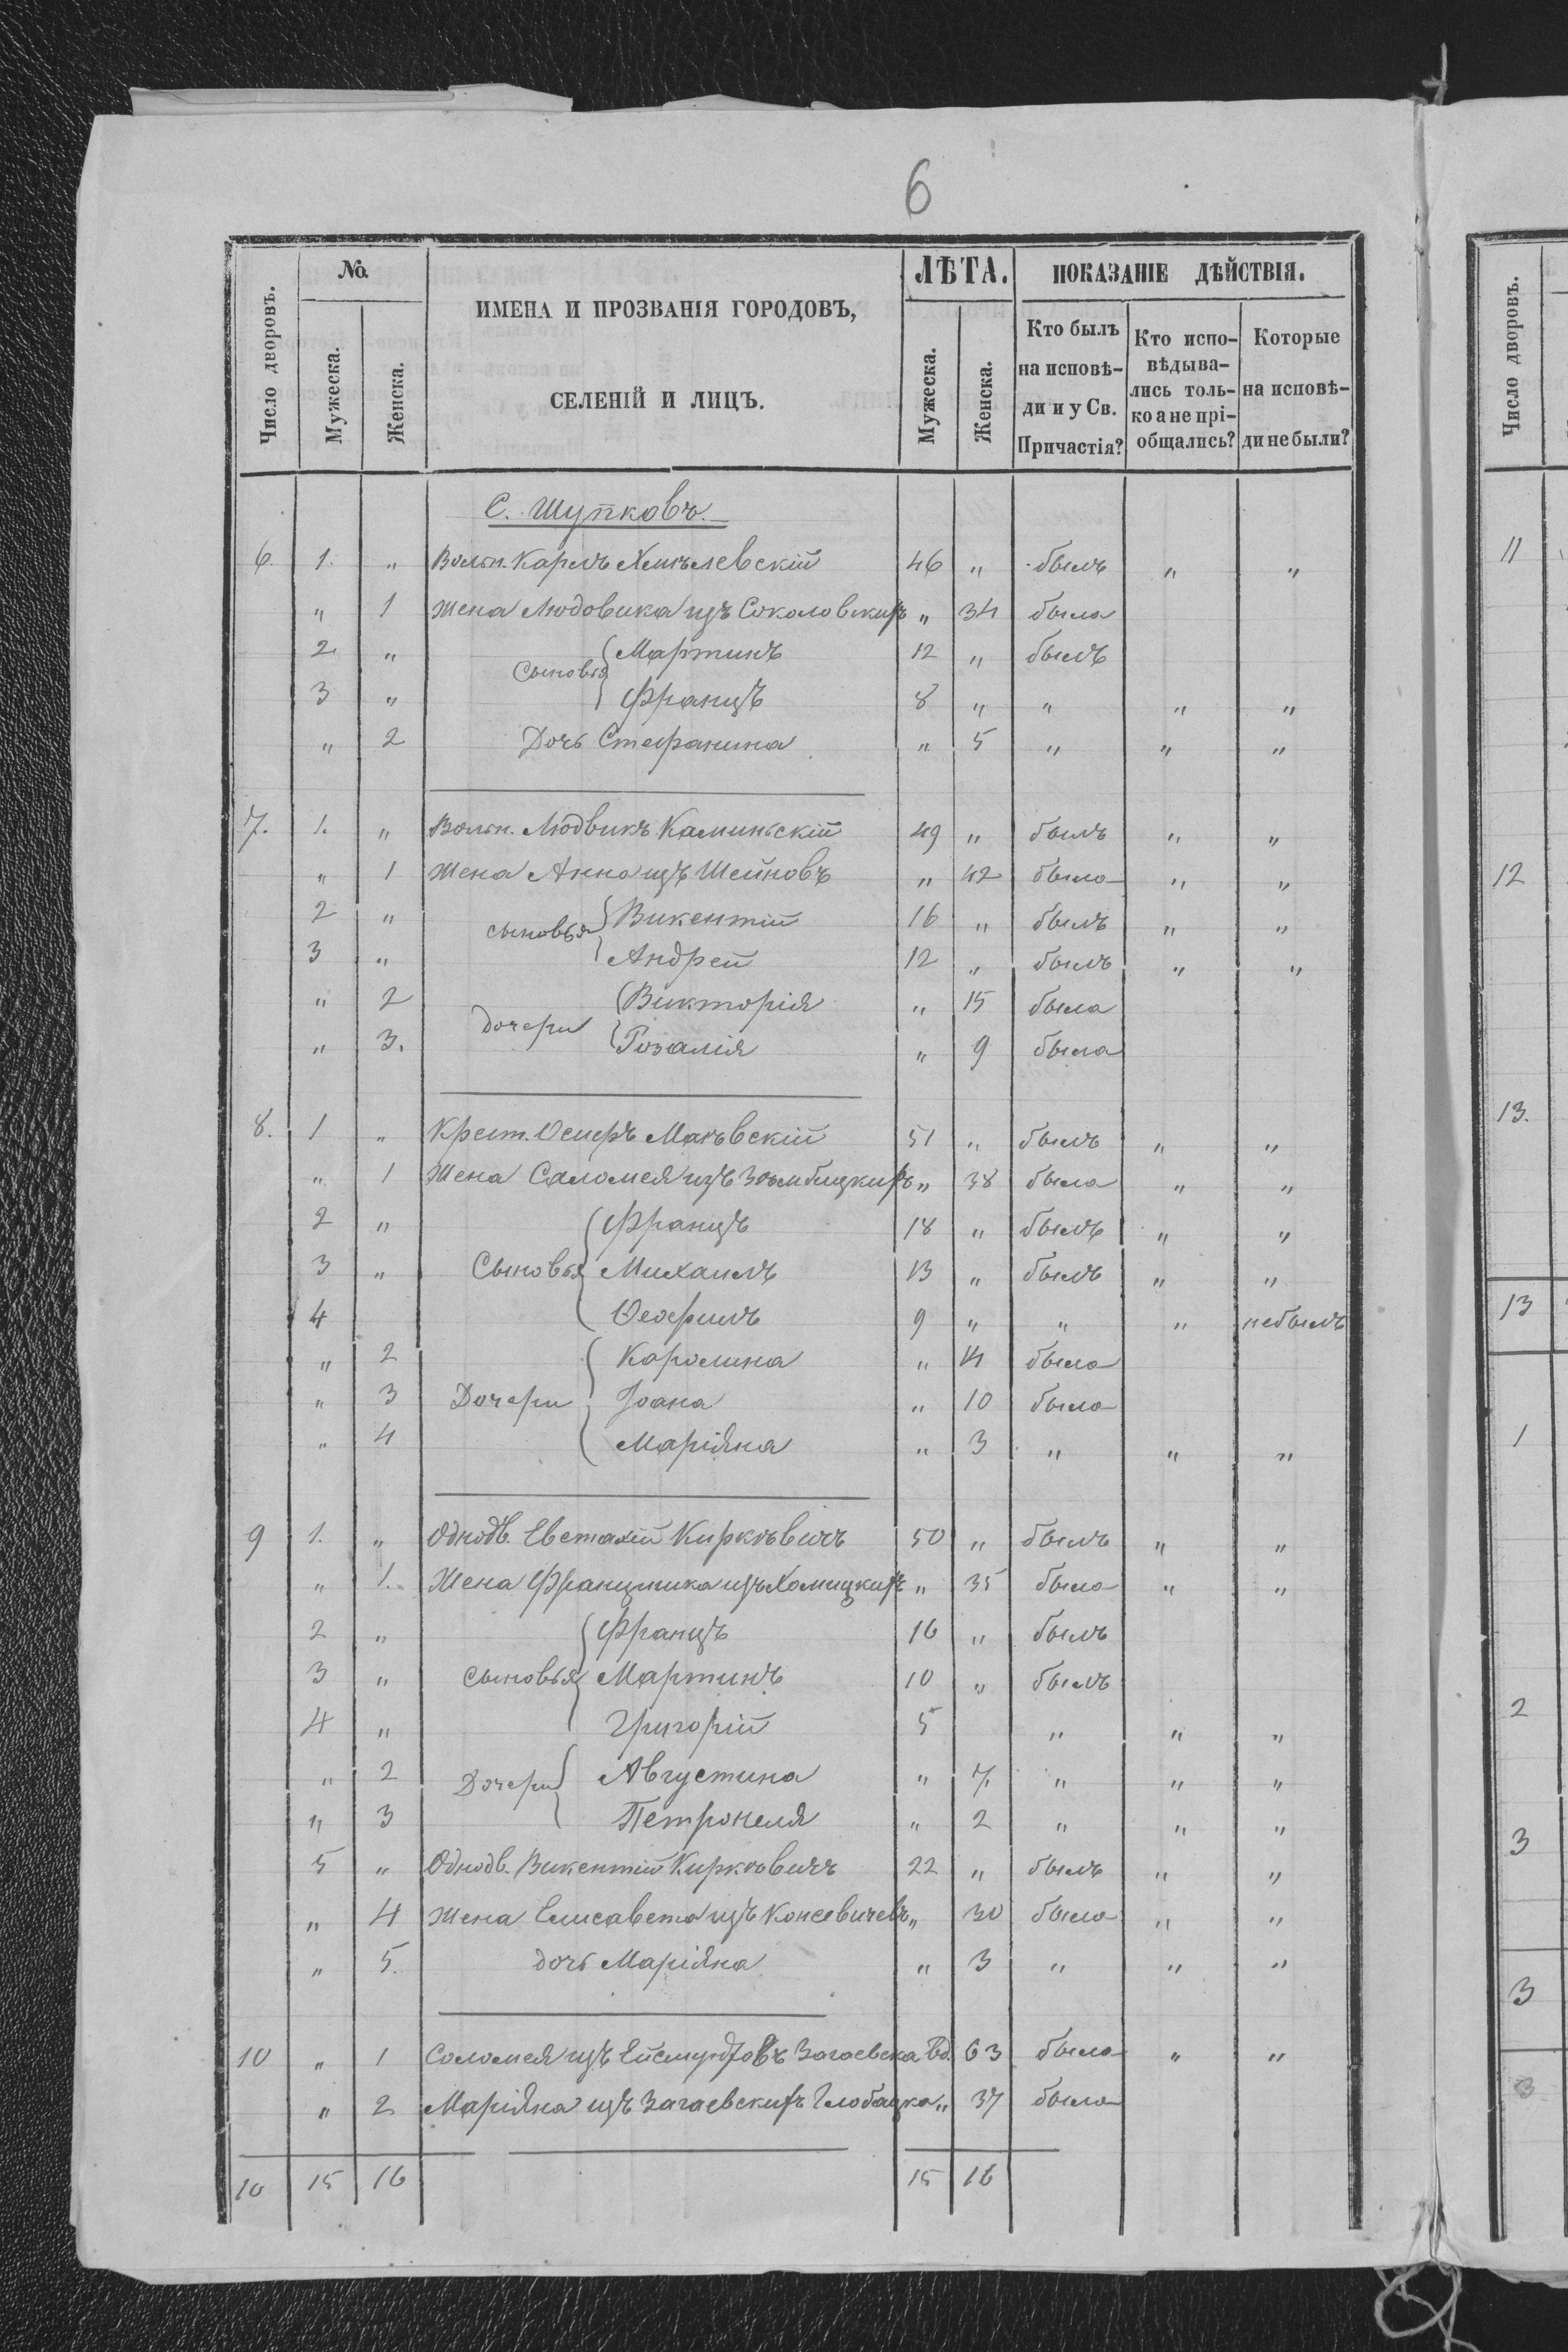 6
Число дворовъ. | №. Мужеска. | Женска. | ИМЕНА И ПРОЗВАНІЯ ГОРОДОВЪ, СЕЛЕНІЙ И ЛИЦЪ. | ЛѢТА. Мужеска. | Женска. | ПОКАЗАНІЕ ДѢЙСТВІЯ. Кто былъ на исповѣди и у Св. Причастія? | Кто исповѣдывались только а не пріобщались? | Которые на исповѣди не были?
С. Шупковъ.
6. 1. " Вольн. Карлъ Хмѣлевскій 46 " былъ " "
" 1 Жена Людовика изъ Соколовскихъ " 34 была
2. " Сыновья Мартинъ 12 " былъ
3 " Францъ 8 " " " "
" 2 Дочь Стефанина " 5 " " "
7. 1. " Вольн. Людвикъ Каминьскій 49 " былъ " "
" 1 Жена Анна изъ Шейновъ " 42 была " "
2 " сыновья Викентій 16 " былъ " "
3 " Андрей 12 " былъ " "
" 2 дочери Викторія " 15 была
" 3. Розалія " 9 была
8. 1 " Крест. 51 " былъ " "
" 1 Жена Саломея изъ " 38 была " "
2 " Францъ 18 " былъ " "
3 " Сыновья Михаилъ 13 " былъ " "
4 Ѳеофилъ 9 " " " небылъ
" 2 Каролина " 14 была
" 3 Дочери Іоана " 10 была
" 4 Маріяна " 3 " " "
9 1. " Однодв. Евстахій Киркѣвичъ 50 " былъ " "
" 1. Жена изъ Хомицкихъ " 35 была " "
2 " Францъ 16 " былъ
3 " сыновья Мартинъ 10 " былъ
4 " Григорій 5 " " "
" 2 Дочери Августина " 7 " " "
" 3 Петронеля " 2 " " "
5 " Однодв. Викентій Киркѣвичъ 22 " былъ " "
" 4 Жена Елисавета изъ " 30 была " "
" 5. дочь Маріяна " 3 " " "
10 " 1 Соломея изъ Загаевска Вд. 63 была " "
" 2 Маріяна изъ Загаевскихъ " 37 была
10 15 16 15 16
Число дворовъ.
11
12
13.
13
1
2
3
3
3